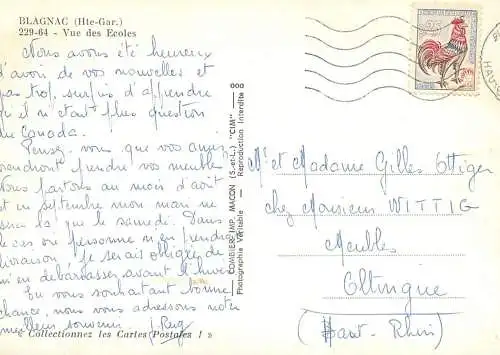 BLAGNAC (Hte-Gar.)
229-64 - Vue des Ecoles
Nous avons été heureux
d'avoir de vos nouvelles et
pas trop surpris d'apprendre
qu'il n'était plus question
du Canada.
Pensez-vous que vos amis
viendront prendre vos meubles
Nous partons au mois d'août
et en septembre mon mari ne
sera là que le samedi. Dans
le cas ou personne n'en prendrait
livraison je serais obligée de
m'en débarrasser avant l'hiver
En vous souhaitant bonne
chance, nous vous adressons notre
meilleur souvenir
« Collectionnez les Cartes Postales ! »
COMBIER IMP. MACON (S.-et-L.) "CIM"
Photographie Véritable - Reproduction Interdite
Mr et Madame Gilles Ottiger
chez Monsieur WITTIG
Meubles
Oltingue
(Haut-Rhin)